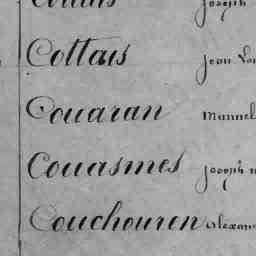 Joseph
Cottais Jean
Couaran Manuel
Couasmes Joseph
Couchouren